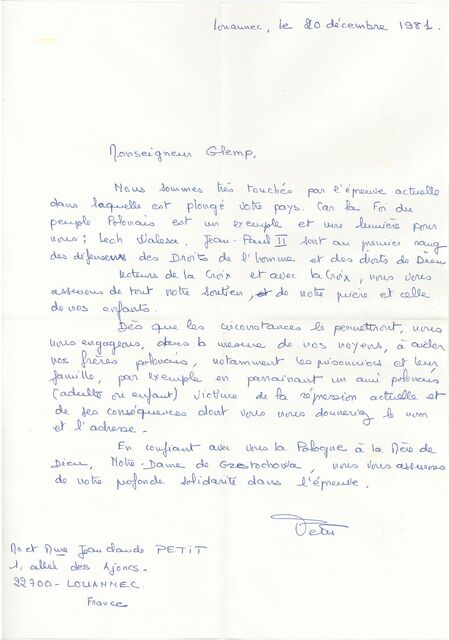 Louannec, le 20 décembre 1981.
Monseigneur Glemp,
Nous sommes très touchés par l'épreuve actuelle
dans laquelle est plongé votre pays. Car la Foi du
peuple Polonais est un exemple et une lumière pour
nous ; Lech Walesa, Jean-Paul II sont au premier rang
des défenseurs des Droits de l'homme et des droits de Dieu
lecteurs de la Croix et avec la Croix, nous vous
assurons de tout notre soutien, et de notre prière et celle
de nos enfants.
Dès que les circonstances le permettront, nous
nous engageons, dans la mesure de nos moyens, à aider
nos frères polonais, notamment les prisonniers et leur
famille, par exemple en parrainant un ami polonais
(adulte ou enfant) victime de la répression actuelle et
de ses conséquences dont vous nous donneriez le nom
et l'adresse.
En confiant avec vous la Pologne à la Mère de
Dieu, Notre-Dame de Czestochowa, nous vous assurons
de notre profonde solidarité dans l'épreuve.
Petit
Mr et Mme Jean Claude PETIT
1, allée des Ajoncs -
22700 - LOUANNEC
France